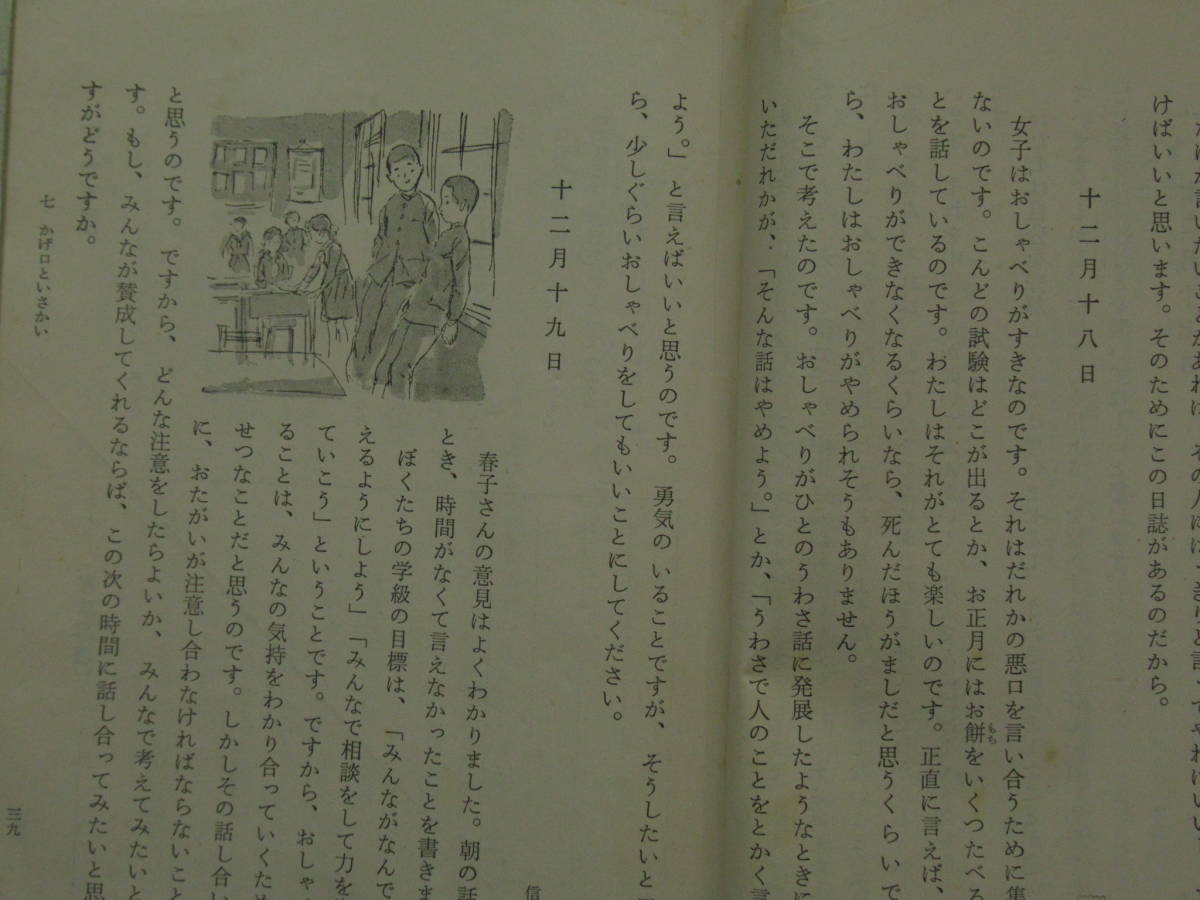 けばいいと思います。そのためにこの日誌があるのだから。
十二月十八日
女子はおしゃべりがすきなのです。それはだれかの悪口を言い合うために集
ないのです。こんどの試験はどこが出るとか、お正月にはお餅をいくつたべる
もち
とを話しているのです。わたしはそれがとても楽しいのです。正直に言えば、
おしゃべりができなくなるくらいなら、死んだほうがましだと思うくらいで
ら、わたしはおしゃべりがやめられそうもありません。
そこで考えたのです。おしゃべりがひとのうわさ話に発展したようなときに
いただれかが、「そんな話はやめよう。」とか、「うわさで人のことをとかく言
よう。」と言えばいいと思うのです。勇気のいることですが、そうしたいと
ら、少しぐらいおしゃべりをしてもいいことにしてください。
信
十二月十九日
春子さんの意見はよくわかりました。朝の話
とき、時間がなくて言えなかったことを書きま
ぼくたちの学級の目標は、「みんながなんで
えるようにしよう」「みんなで相談をして力を
ていこう」ということです。ですから、おしゃ
ることは、みんなの気持をわかり合っていくため
せつなことだと思うのです。しかしその話し合い
に、おたがいが注意し合わなければならないこと
と思うのです。ですから、どんな注意をしたらよいか、みんなで考えてみたいと
す。もし、みんなが賛成してくれるならば、この次の時間に話し合ってみたいと思
すがどうですか。
七 かげ口といさかい
三九